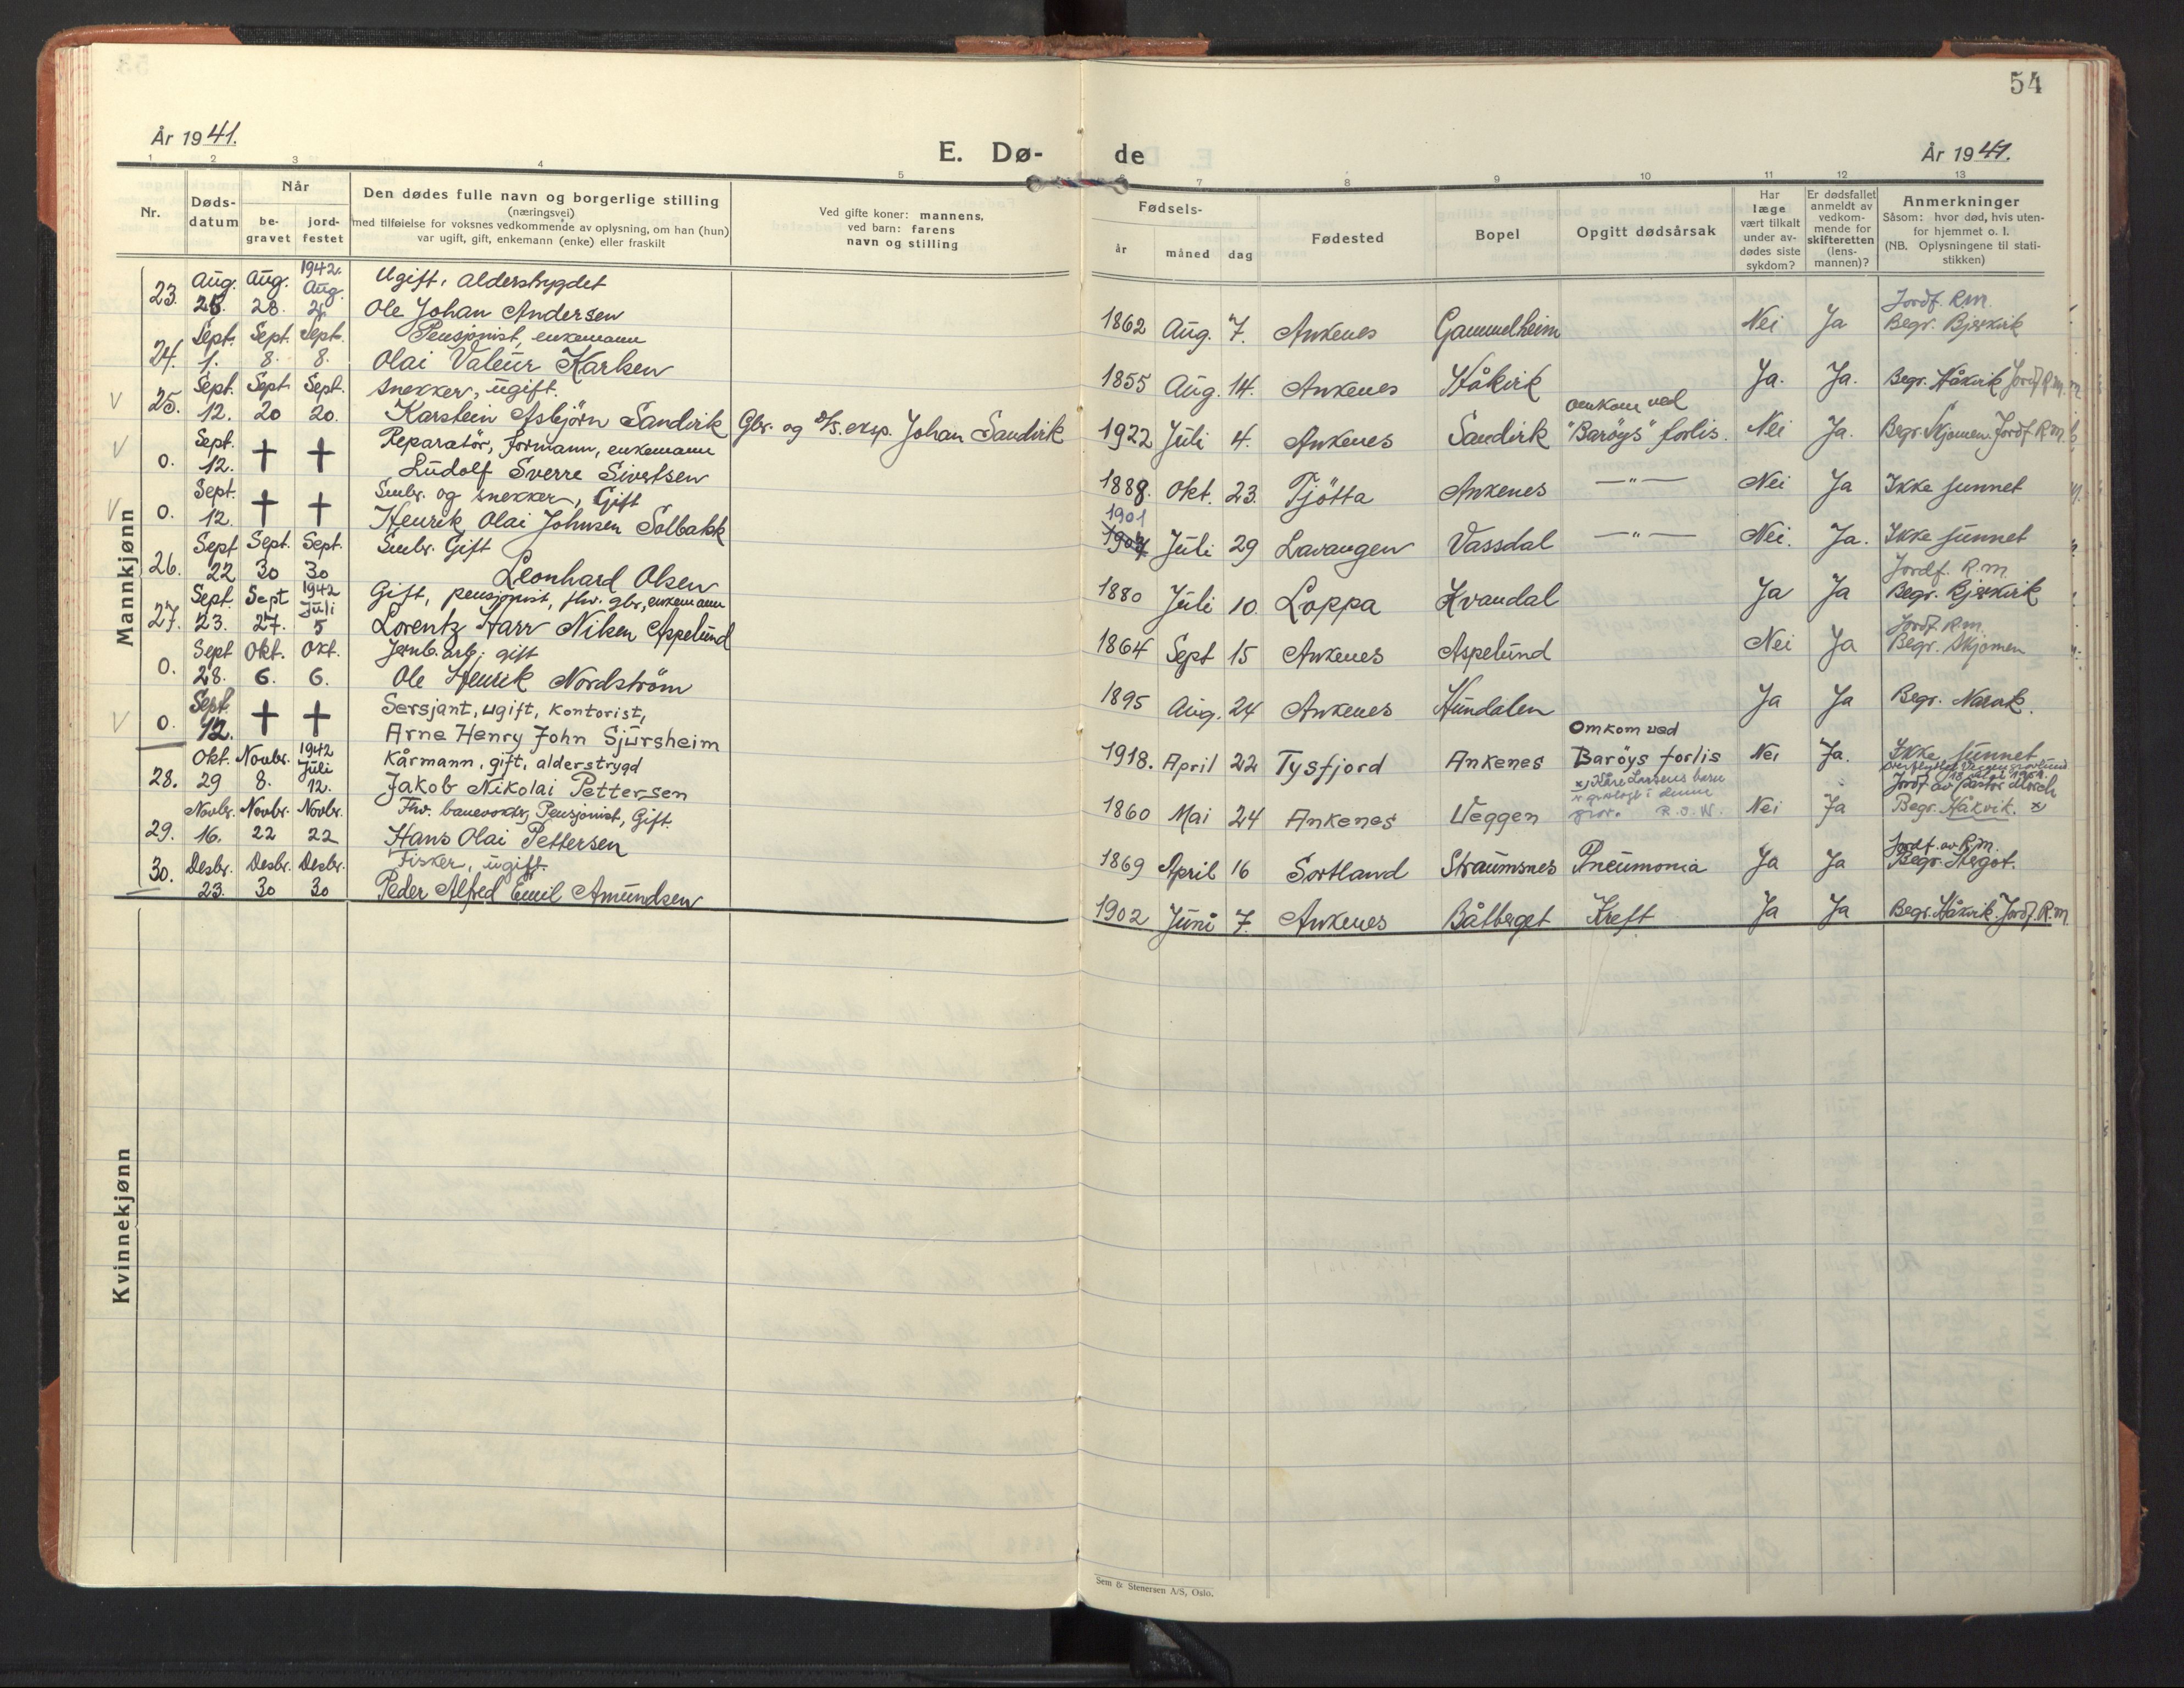 54
År 1941.
E. Dø-
de
År 1941.
1 2 3 4 5 6 7 8 9 10 11 12 13
Nr.
Døds-
datum
Når
be-
gravet
jord-
festet
Den dødes fulle navn og borgerlige stilling
(næringsvei)
med tilføielse for voksnes vedkommende av oplysning, om han (hun)
var ugift, gift, enkemann (enke) eller fraskilt
Ved gifte koner: mannens,
ved barn: farens
navn og stilling
Fødsels-
år
måned
dag
Fødested
Bopel
Opgitt dødsårsak
Har
læge
vært tilkalt
under av-
dødes siste
sykdom?
Er dødsfallet
anmeldt av
vedkom-
mende for
skifteretten
(lens-
mannen)?
Anmerkninger
Såsom: hvor død, hvis uten-
for hjemmet o. l.
(NB. Oplysningene til stati-
stikken)
Mannkjønn
23. Aug. 25. Aug. 28. 1942. Aug. Ugift, alderstrygdet
Ole Johan Andersen
1862 Aug. 7. Ankenes Gammelheim Nei Ja Jordf. R.m.
Begr. Bjerkvik
24. Sept. 1. Sept. 8. Sept. 8. Pensjonist, enkemann
Olai Valeur Karlsen
1855 Aug. 14. Ankenes Håkvik Ja. Ja. Begr. Håkvik Jordf. R.m.
25. Sept. 12. Sept. 20 Sept. 20. snekker, ugift.
Karsten Asbjörn Sandvik Gbr. og D/S. eksp. Johan Sandvik
1922 Juli 4. Ankenes Sandvik Omkom ved
"Baröys" forlis. Nei Ja. Begr. Skjomen. Jordf. R.m.
0. Sept. 12. + + Reparatør, formann, enkemann
Ludolf Sverre Sivertsen
1888. Okt. 23. Tjötta Ankenes —"— Nei Ja Ikke funnet
0. Sept. 12. + + Smbr. og snekker, Gift
Henrik Olai Johnsen Solbakk
1901
Juli 29 Lavangen Vassdal —"— Nei. Ja. Ikke funnet
26. Sept 22 Sept. 30 Sept. 30 Smbr. Gift
Leonhard Olsen
1880 Juli 10. Loppa Kvandal Ja Ja Jordf. R.m.
Begr. Bjerkvik
27. Sept. 23. Sept 27. 1942 Juli 5 Gift, pensjonist, fhv. gbr, enkemann
Lorentz Harr Nilsen Aspelund
1864 Sept 15 Ankenes Aspelund Nei Ja Jordf. R.m.
Begr. Skjomen
0. Sept 28. Okt. 6. Okt. 6. Jernb. arb.; gift
Ole Henrik Nordström
1895 Aug. 24 Ankenes Hundalen Ja Ja Begr. Narvik.
0. Sept. 12. + + Sersjant, ugift, kontorist,
Arne Henry John Sjursheim
1918. April 22 Tysfjord Ankenes Omkom ved
Baröys forlis Nei Ja. Ikke funnet
28. Okt. 29 Novbr. 8. 1942 Juli 12. Kårmann, gift, alderstrygd
Jakob Nikolai Pettersen
1860 Mai 24 Ankenes Veggen x) Kåre Larsens barn
i denne
grav. R.O.W. Nei Ja Jordf. av pastor
Begr. Håkvik. x)
29. Novbr. 16. Novbr. 22 Novbr. 22 Fhv. banevokter, Pensjonist, Gift.
Hans Olai Pettersen
1869 April 16 Sortland Straumsnes Pneumonia Ja Ja Jordf. av R.m.
Begr.
30. Desbr. 23. Desbr. 30 Desbr. 30 Fisker, ugift.
Peder Alfred Emil Amundsen
1902 Juni 7. Ankenes Båtberget Kreft Ja Ja Begr. Håkvik. Jordf. R.m.
Kvinnekjønn
Sem & Stenersen A/S, Oslo.